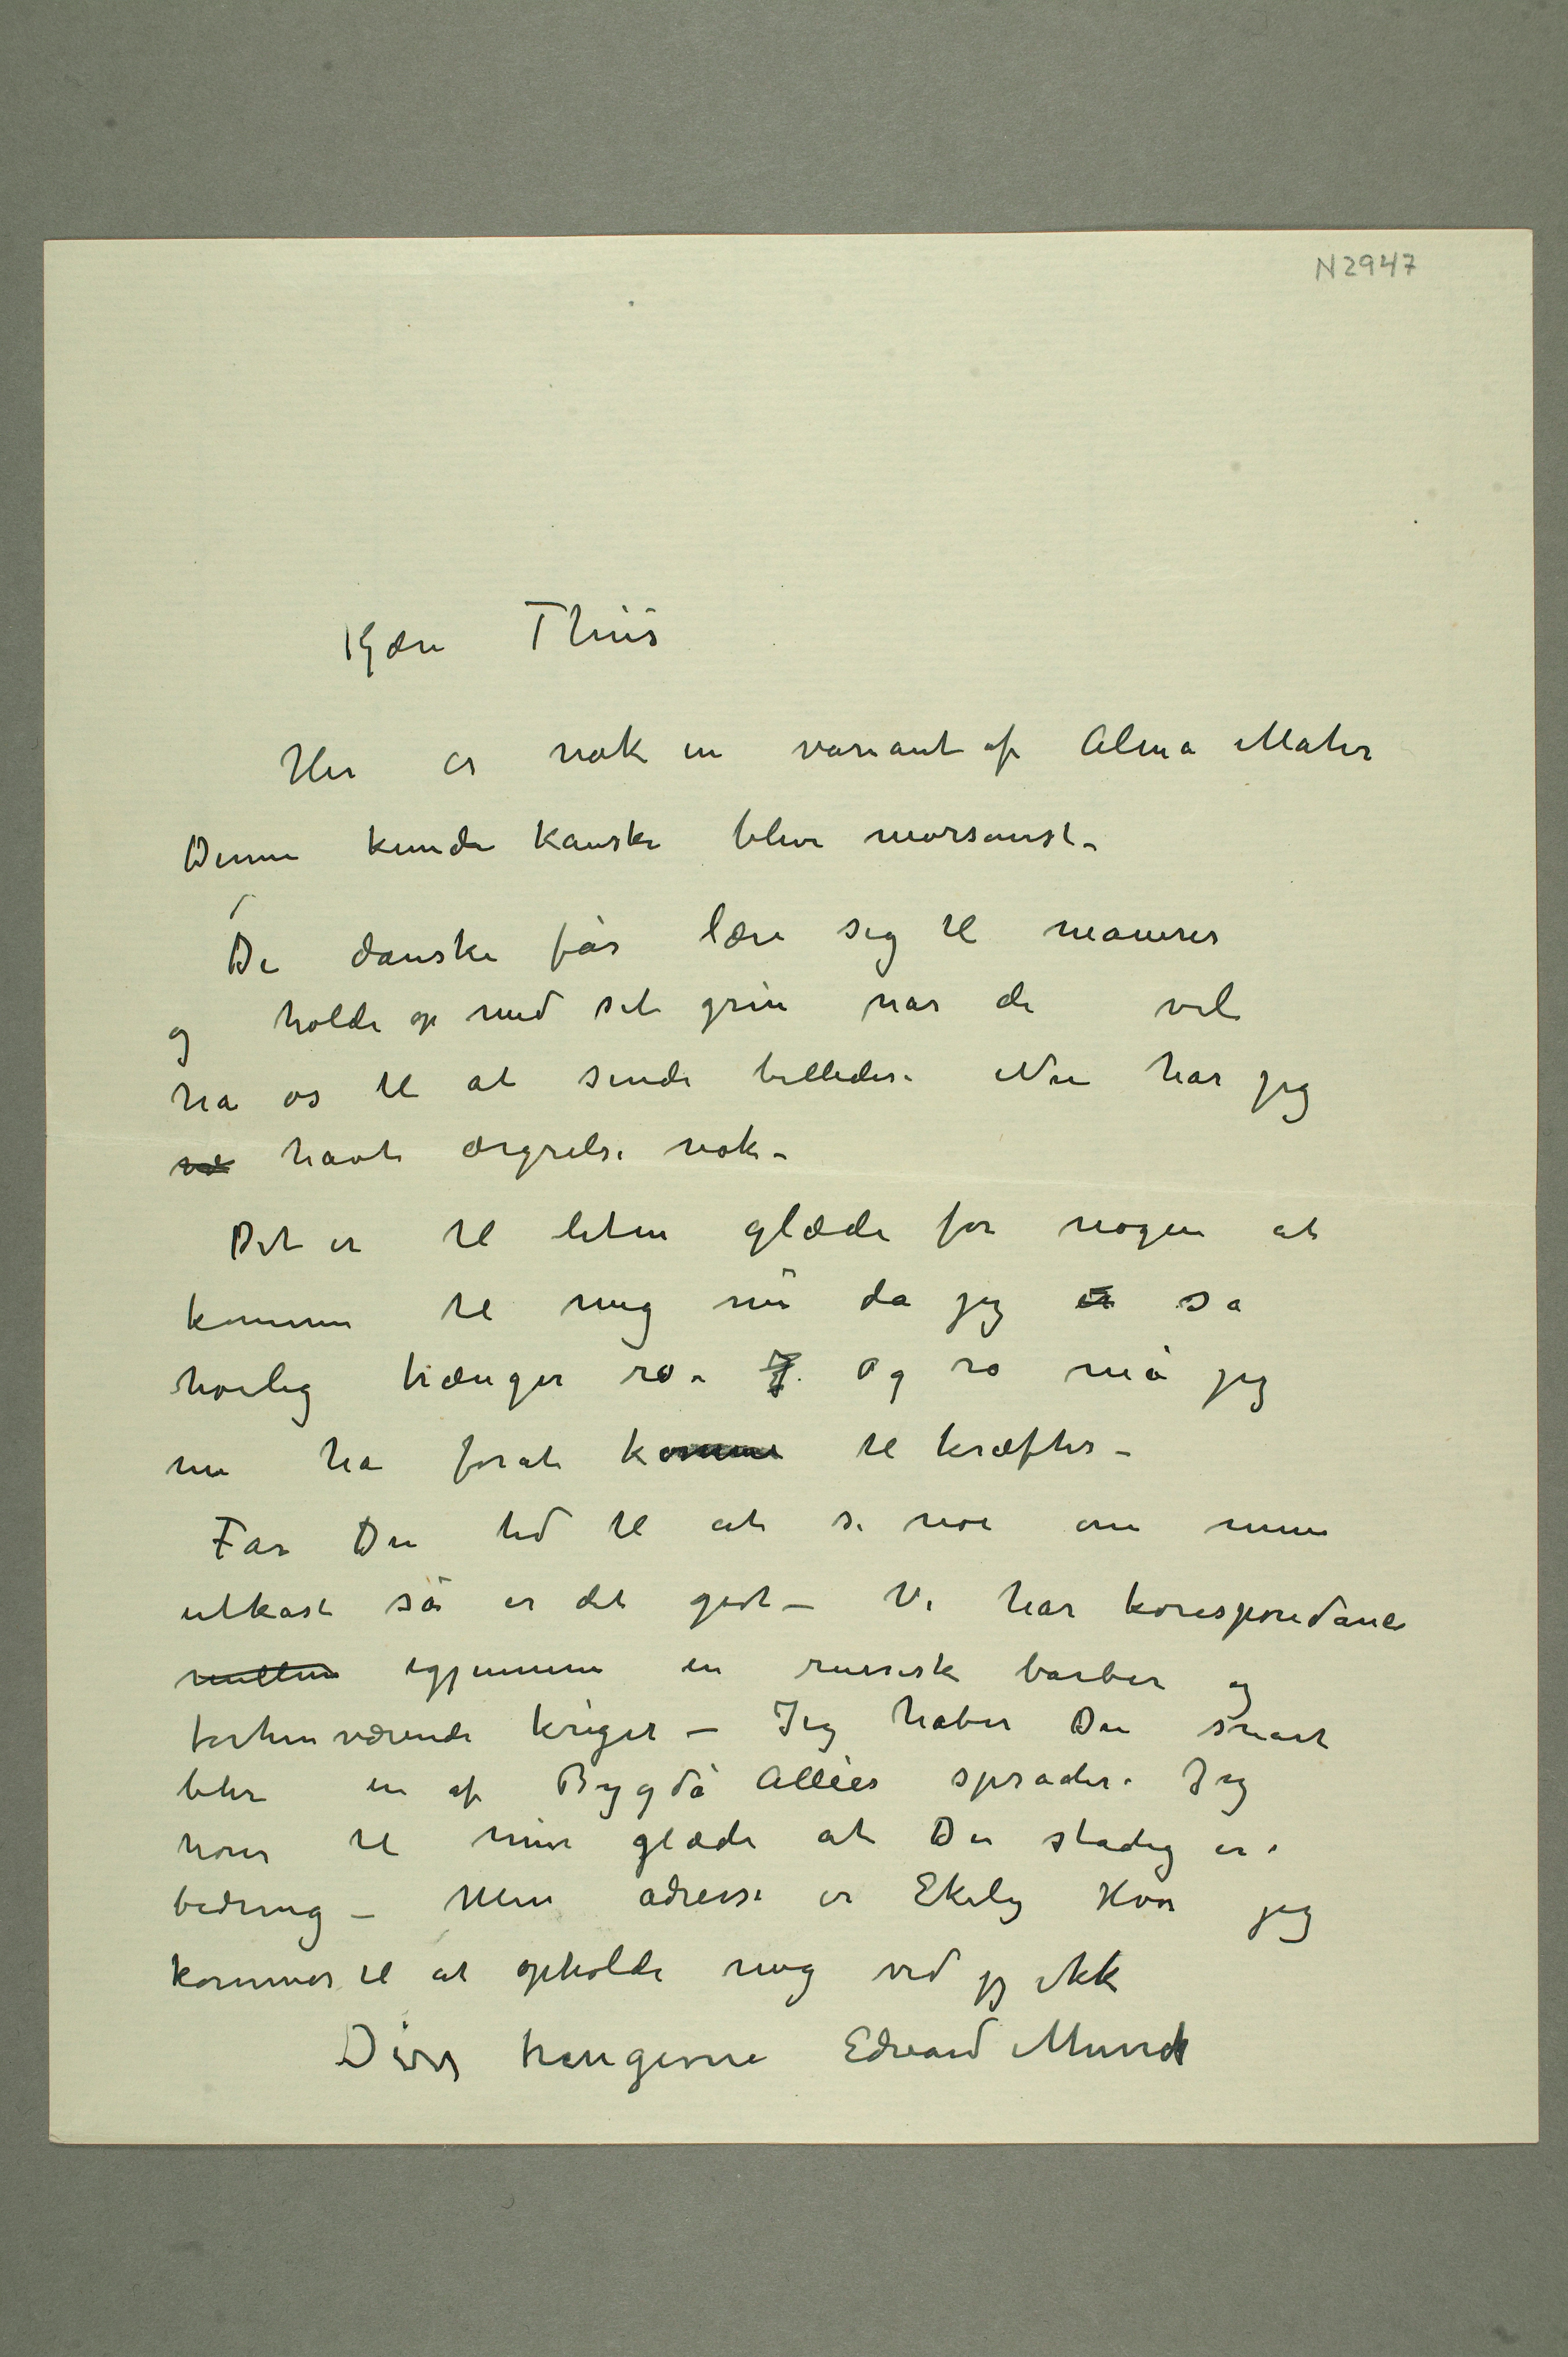 N 2947
Kjære Thiis
Her er nok en variant af Alma Mater
Denne kunde kanske blive morsomst –
De danske får lære sig til manerer
og holde op med sit grin når de vil
ha os til at sende billeder. Nu har jeg
væ havt ærgrelse nok –
Det er til liten glæde for nogen at
komme til mig nu da jeg er så
høilig trænger ro – J. Og ro må jeg
nu ha forat komme til kræfter –
Får Du tid til at se noe om mine
utkast så er det godt – Vi har korespondance
mellem igjennem en russisk barber og
forhenværende kriger – Jeg håber Du snart
blir en af Bygdø Allées sprader. Jeg
hører til min glæde at Du stadig er i
bedring – Min adresse er Ekely Hvor jeg
kommer til at opholde mig ved jeg ikke
Din hengivne Edvard Munch